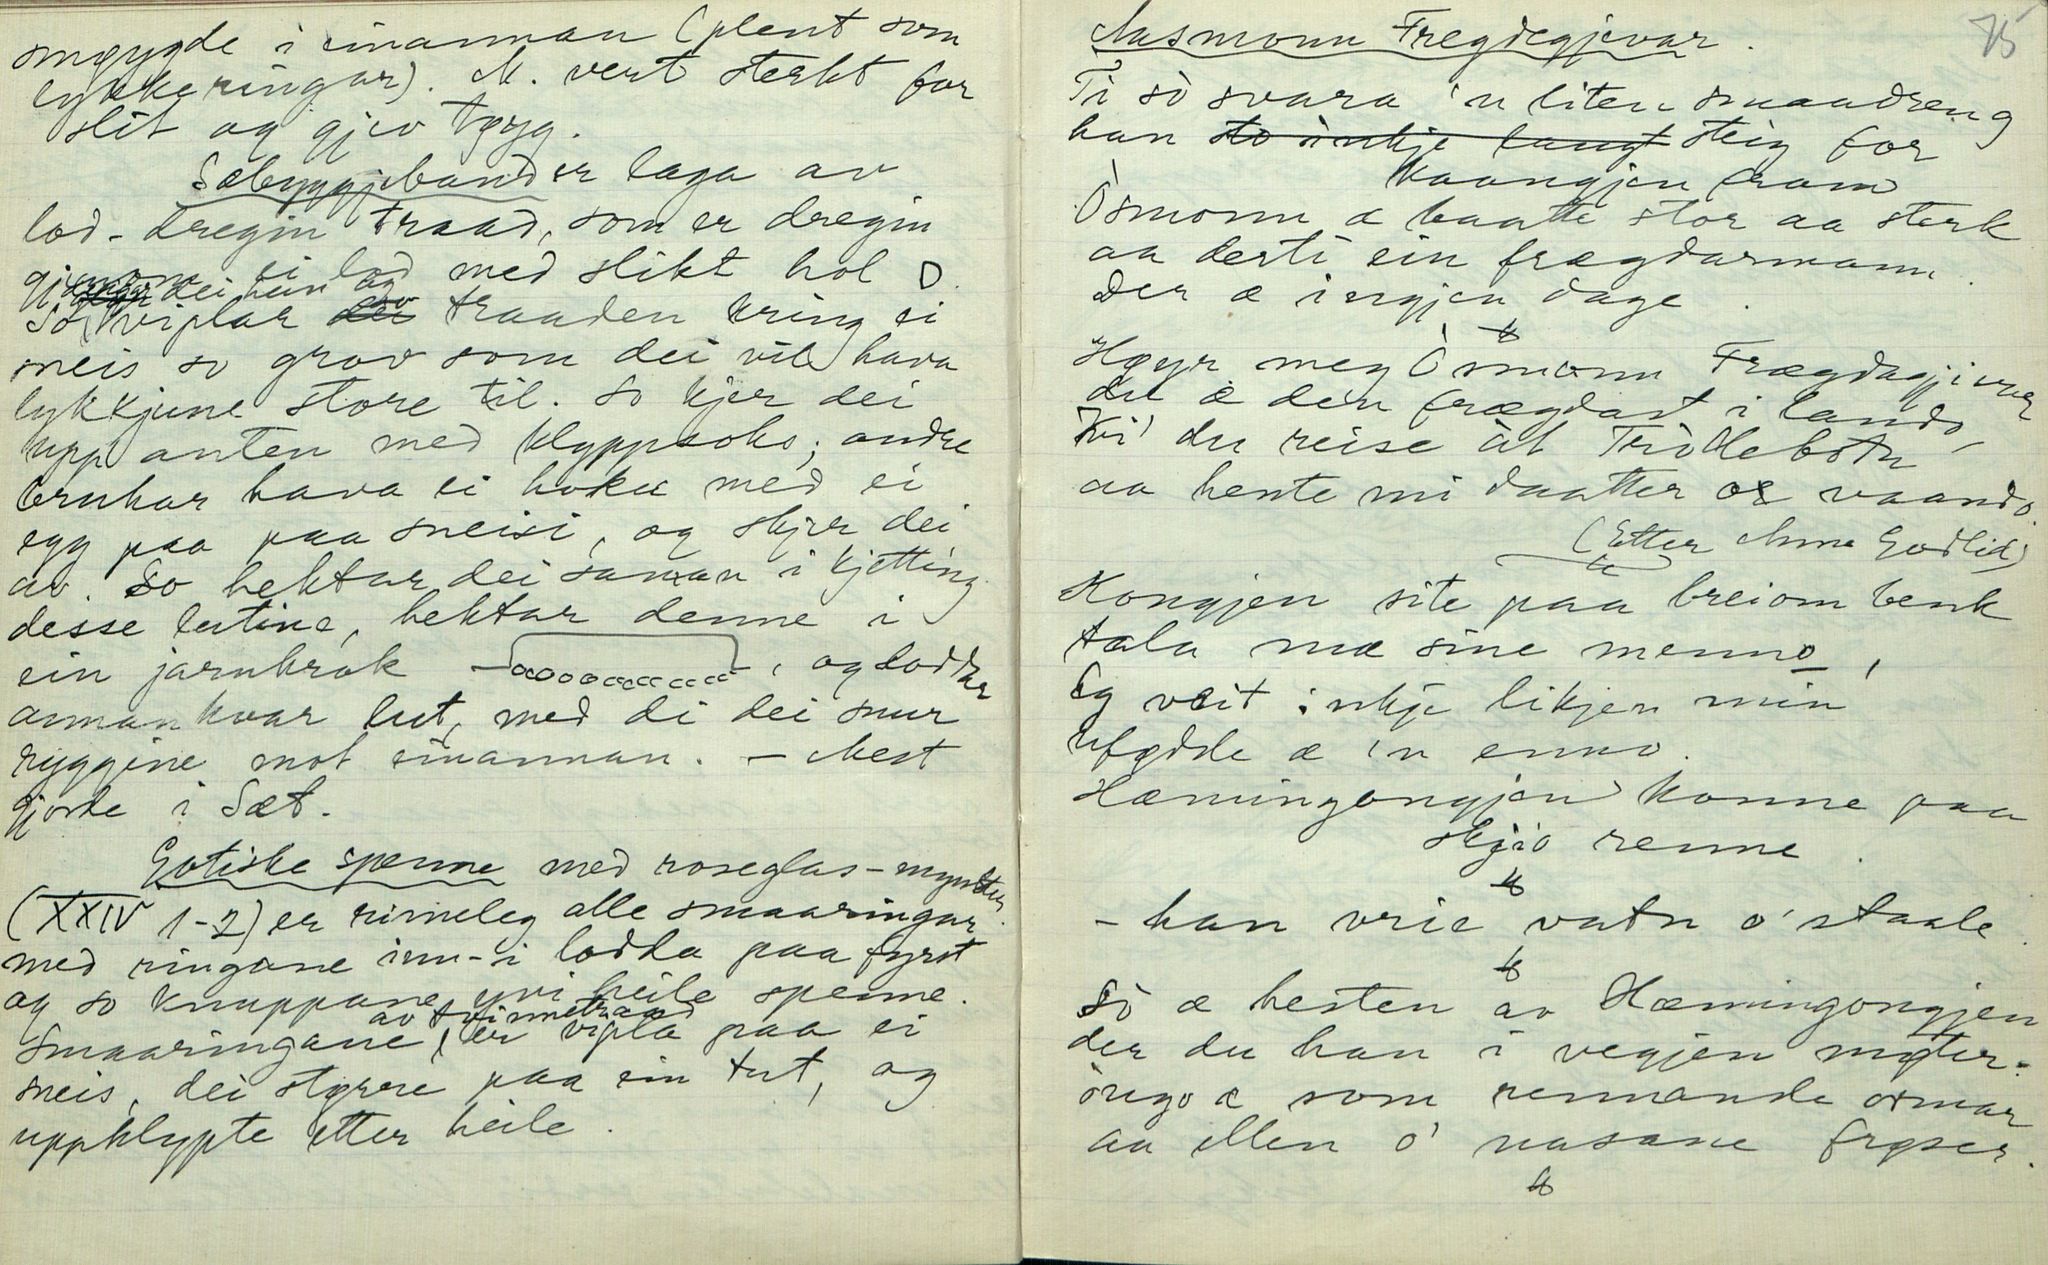 smøygde i einannan (plent som
lykkeringar). M. vert sterkt for
slit og gjev tøyg.
Sæbyggjeband er laga av
lod-dregin traad, som er dregin
gjenom ei lod med slikt hol D.
dregur dei hein og
So viplar dei traaden kring ei
sneis so grov som dei vil hava
lykkjune store til. So kjer dei
upp anten med klyppsoks; andre
brukar hava ei hoka med ei
egg paa paa sneisi, og skjer dei
av. So hektar dei saman i kjetting
desse lutine, hektar denne i
ein jarnkrok , og loddar
annankvar lut, med di dei snur
ryggine mot einannan. – Mest
gjorde i Sæt.
Gotiske spenne med roseglas-mynster
(XXIV 1-2) er rimeleg alle smaaringar
med ringane inn-i lodda paa fyrst
og so knuppane yvi heile spenne.
av tvinnetraad
Smaaringane, er vipla paa ei
sneis, dei større paa ein tut, og
uppklypte etter heile.
75
Aasmonn Fregdegjevar.
Ti so svara 'n liten smaadreng
han sto inkje langt steig for
kaangjen fram
Òsmonn æ baatte stor aa sterk
aa derti ein frægdarmann.
Der æ ingjen dage.
Høyr meg Òsmonn Frægdagjevar
du æ den frægdast i lando,
vi' du reise åt Trollebotn
aa hente mi daatter or vaando.
(Etter Anne Godlid)
Kongjen site paa breiom benk
tala mæ sine menno,
Eg veit inkje likjen min
ufødde æ 'n enno.
Hæmingongjen konne paa
skjio renne.
– han vrie vatn o' staale.
So æ hesten av Hæmingongjen
der du han i vegjen møter.
òugo æ som rennande ormar
aa ellen o' nasane frøser.